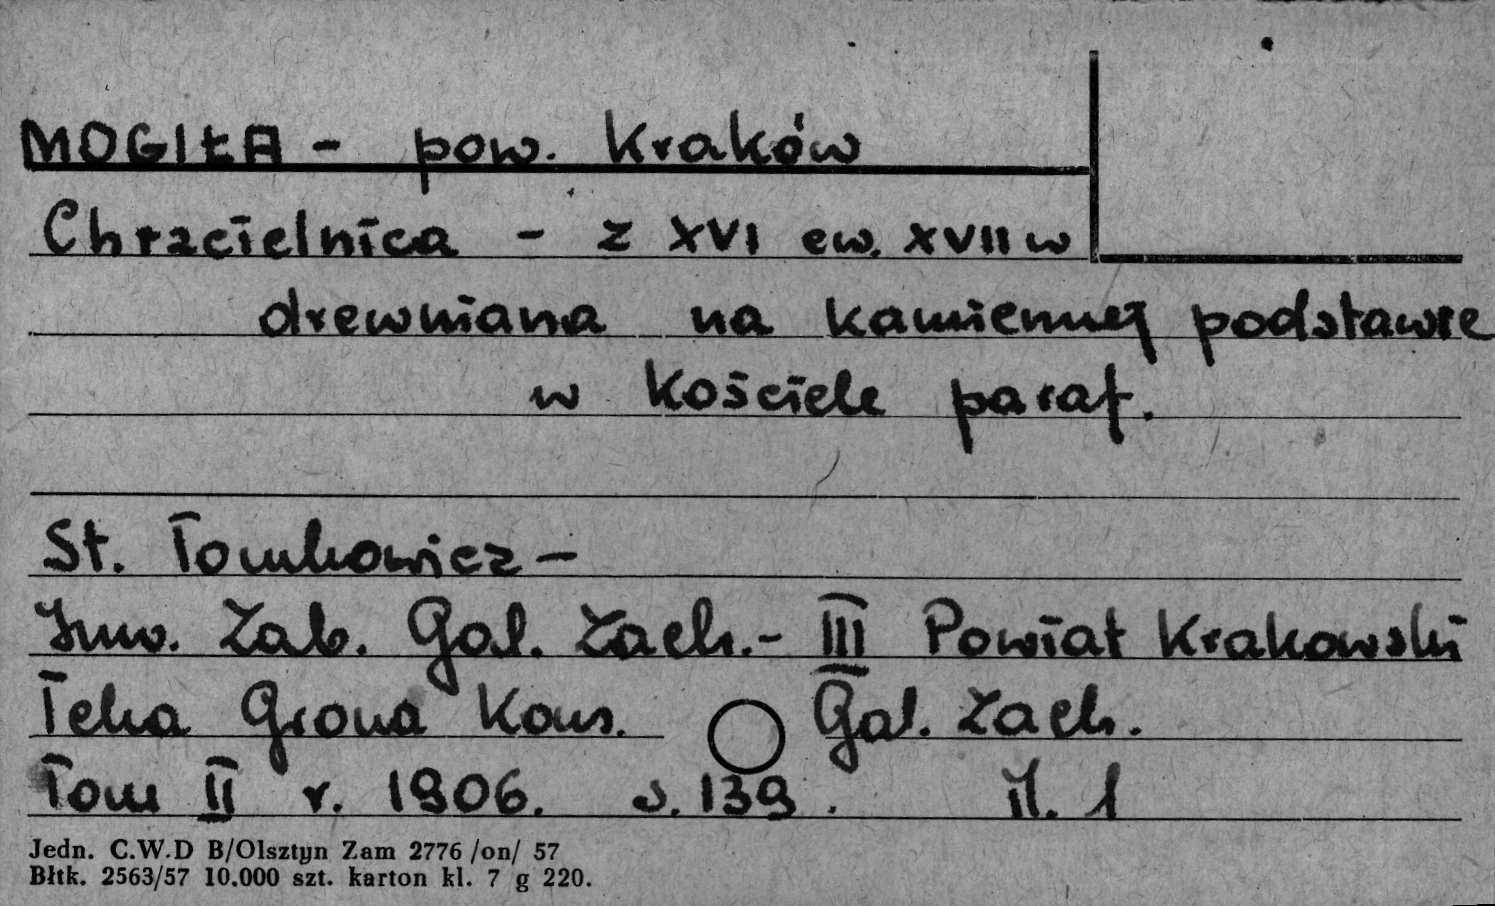 MOGIŁA - pow. Kraków
Chrzcielnica - z XVI ew. XVII w
drewniana na kamiennej podstawie
w kościele paraf.
St. Tomkowicz -
Inw. Zab. Gal. Zach. - III Powiat Krakowski
Teka Grona Kons. Gal. Zach.
Tom II r. 1906. s. 139. il. 1
Jedn. C.W.D B/Olsztyn Zam 2776 /on/ 57
Błtk. 2563/57 10.000 szt. karton kl. 7 g 220.